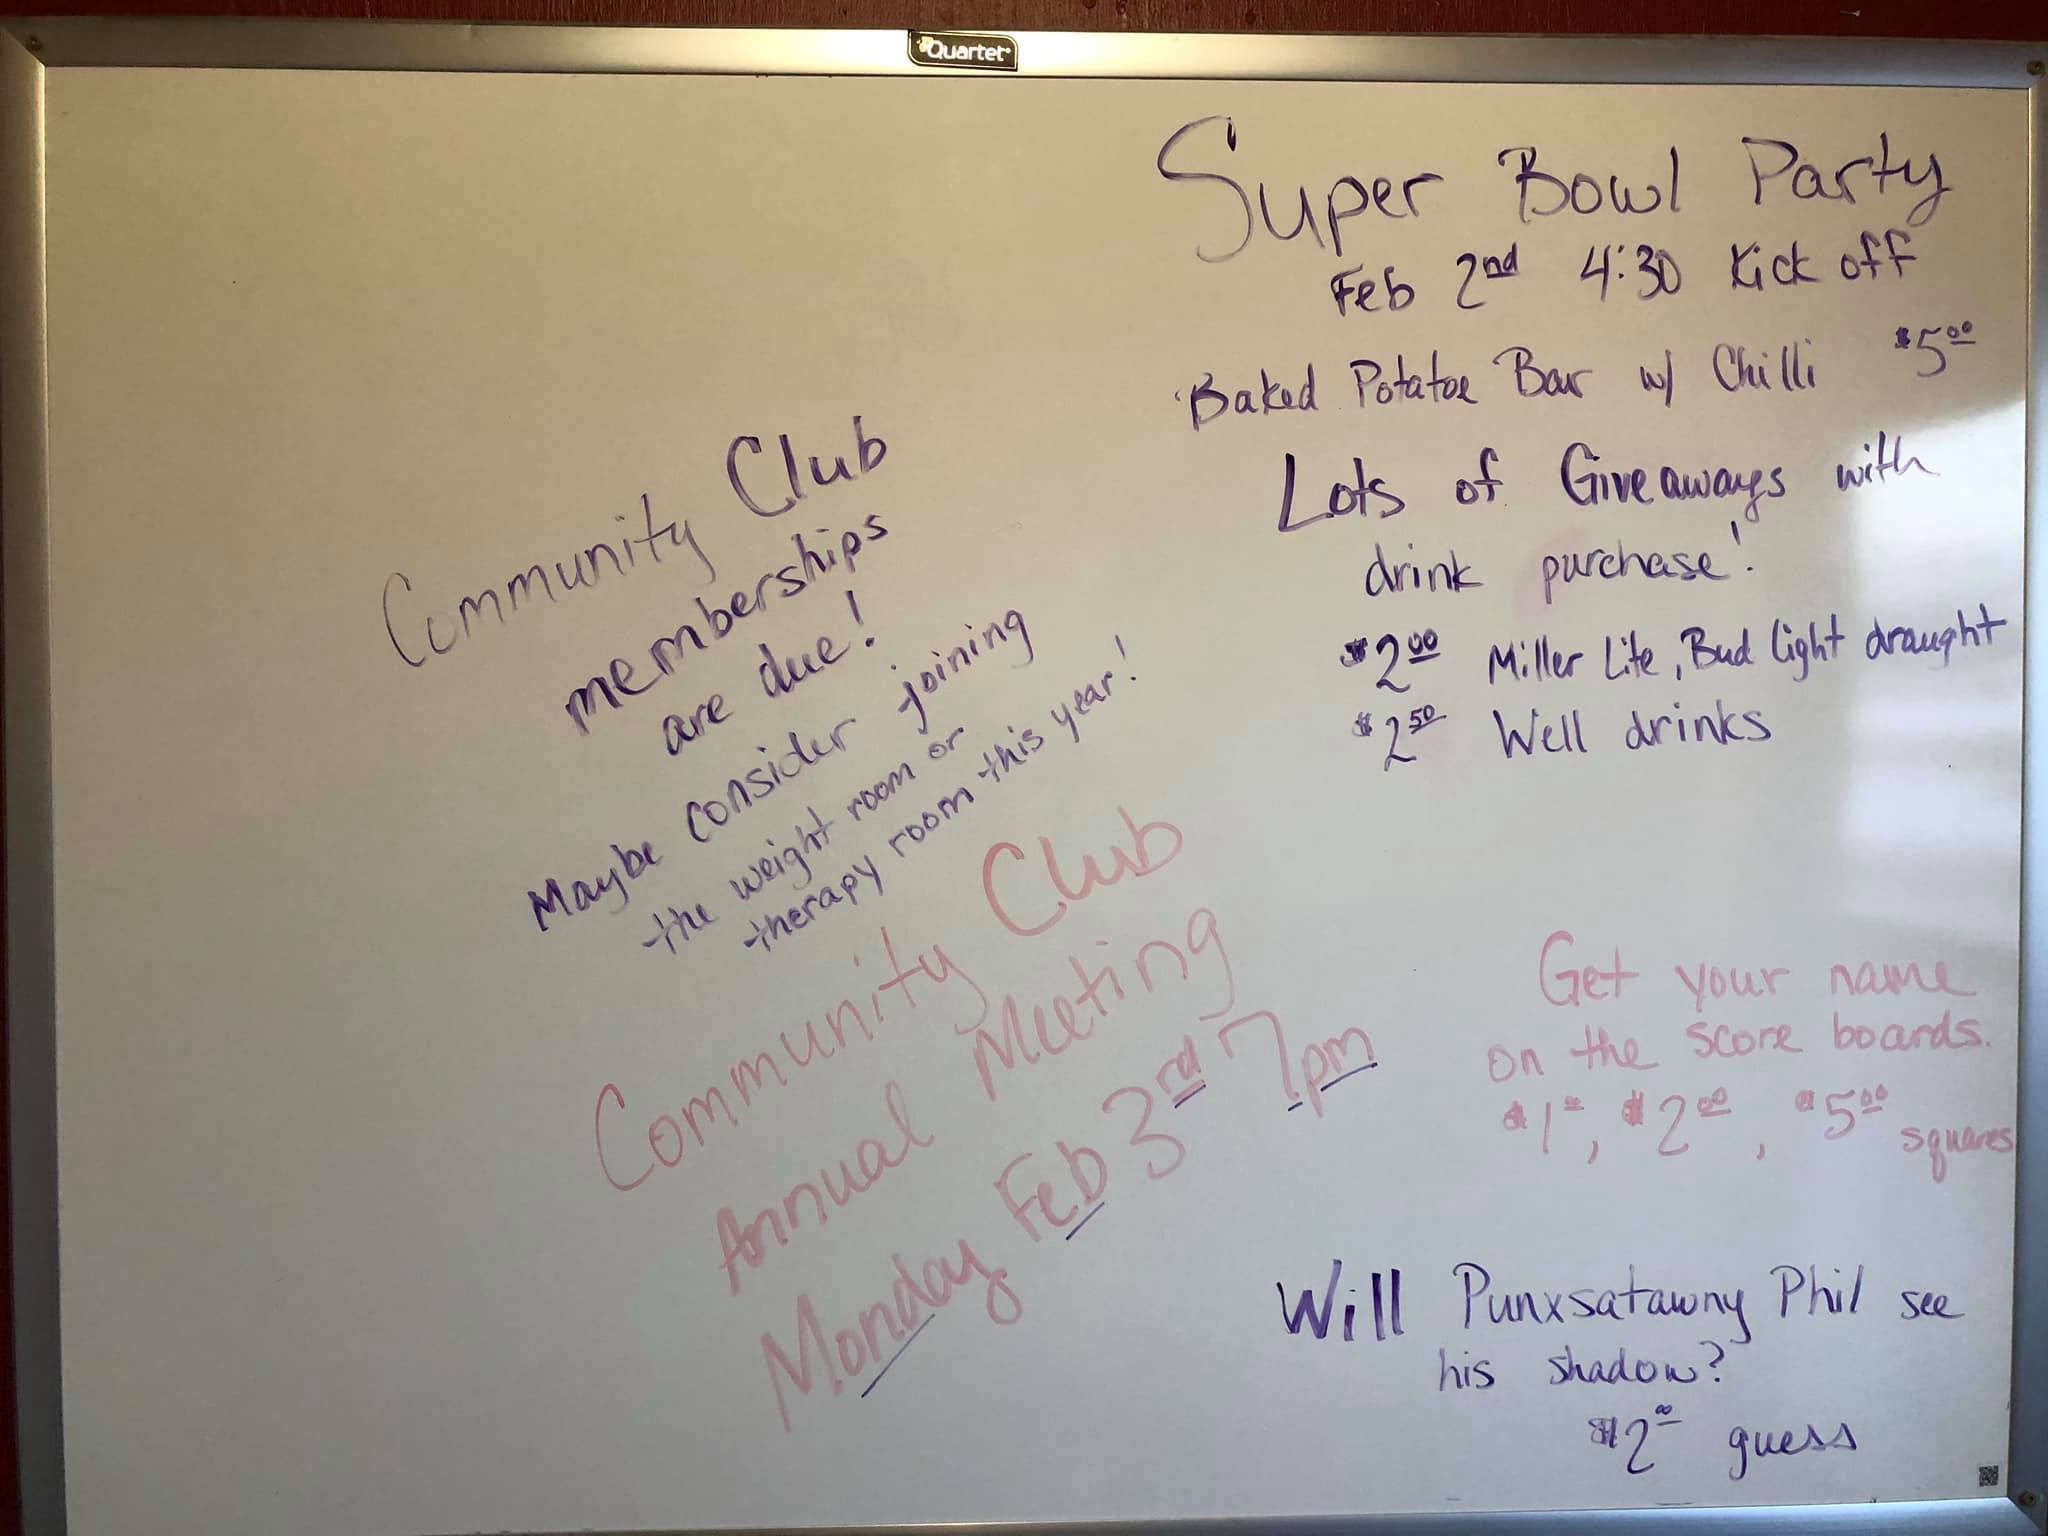 Quartet
Super Bowl Party
Feb 2nd 4:30 Kick off
Baked Potatoe Bar w/ Chilli $5.00
Lots of Giveaways with
drink purchase!
$2.00 Miller Lite, Bud Light draught
$2.50 Well drinks
Community Club
memberships
are due!
Maybe consider joining
the weight room or
therapy room this year!
Community Club
Annual Meeting
Monday Feb 3rd 7pm
Get your name
on the score boards.
$1.00, $2.00, $5.00 squares
Will Punxsatawny Phil see
his shadow?
$2.00 guess